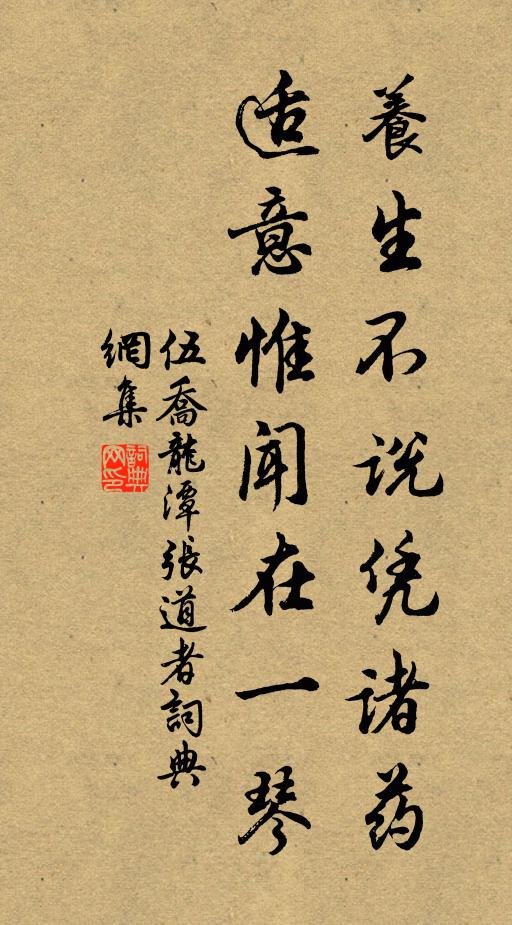 養生不说凭诸药
适意惟闻在一琴
伍喬龍潭張道者詞典
網集
詞典網印